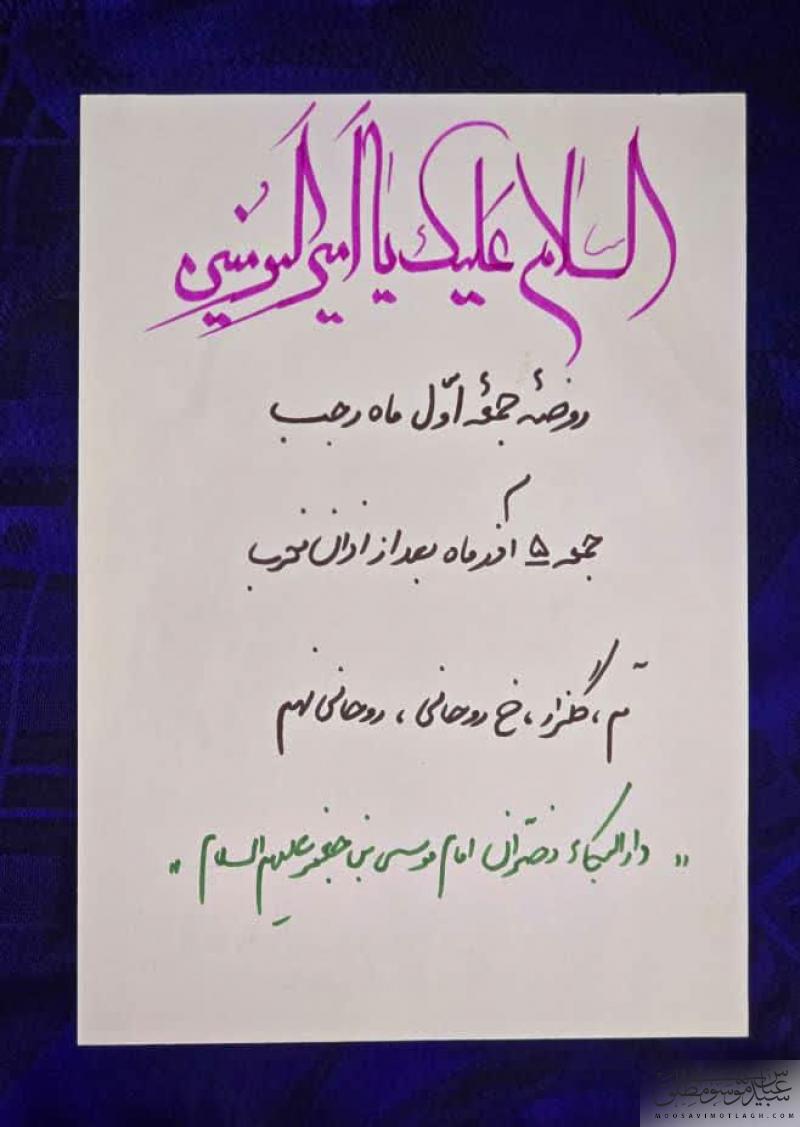 السلام علیک یا امیرالمومنین
روضهٔ جمعهٔ اوّل ماه رجب
جمعه ۵ ماه بعد از اذان مغرب
گلزار، خ روحانی، روحانی نهم
"دارالبکاء دختران امام موسی بن جعفر علیهم السلام"
سید عباس موسوی مطلق
MOOSAVIMOTLAGH.COM